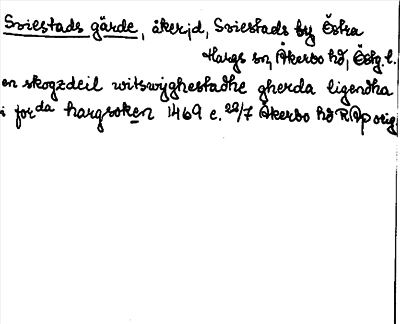 Sviestads gärde, åkerjd, Sviestads by Östra
Hargs sn, Åkerbo hd, Östg l.
en skogzdeil witswyghestadhe gherda ligendha
i for da hargsoken 1469 e. 22/7 Åkerbo hd RAp orig